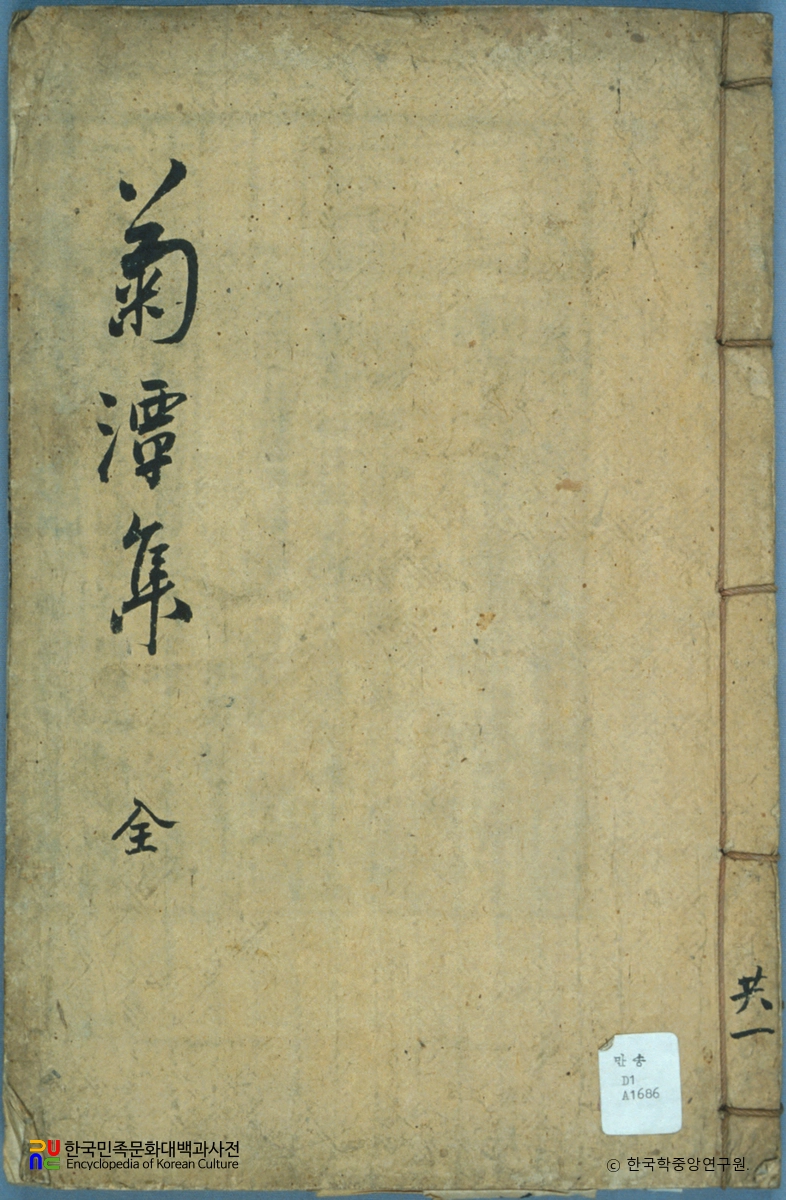 菊潭集
全
共一
만송
D1
A1686
한국민족문화대백과사전
Encyclopedia of Korean Culture
© 한국학중앙연구원.